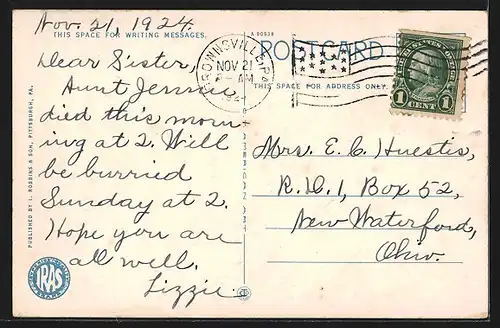 Nov. 21, 1924.
THIS SPACE FOR WRITING MESSAGES.
Dear Sister,
Aunt Jennie
died this morn-
ing at 2. Will
be burried
Sunday at 2.
Hope you are
all well.
Lizzie.
PUBLISHED BY I. ROBBINS & SON, PITTSBURGH, PA.
IRAS
BROWNSVILLE, PA.
NOV 21
AM
A 90938
POSTCARD
THIS SPACE FOR ADDRESS ONLY.
1 CENT 1
Mrs. E. C. Huestis,
R.D. 1, Box 52,
New Waterford,
Ohio.